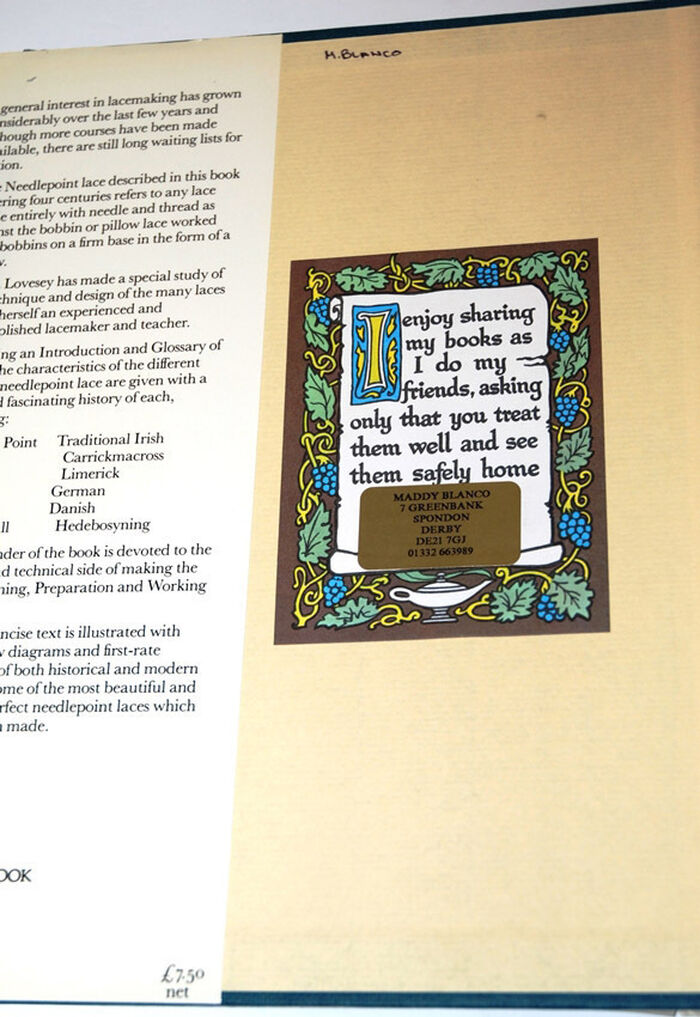 general interest in lacemaking has grown
nsiderably over the last few years and
hough more courses have been made
ailable, there are still long waiting lists for
ion.
Needlepoint lace described in this book
ering four centuries refers to any lace
e entirely with needle and thread as
nst the bobbin or pillow lace worked
bobbins on a firm base in the form of a
w.
Lovesey has made a special study of
chnique and design of the many laces
herself an experienced and
plished lacemaker and teacher.
ng an Introduction and Glossary of
he characteristics of the different
needlepoint lace are given with a
d fascinating history of each,
g:
Point Traditional Irish
Carrickmacross
Limerick
German
Danish
ll Hedebosyning
nder of the book is devoted to the
d technical side of making the
ning, Preparation and Working
ncise text is illustrated with
w diagrams and first-rate
of both historical and modern
ome of the most beautiful and
rfect needlepoint laces which
n made.
OOK
£7.50
net
M. BLANCO
I enjoy sharing
my books as
I do my
friends, asking
only that you treat
them well and see
them safely home
MADDY BLANCO
7 GREENBANK
SPONDON
DERBY
DE21 7GJ
01332 663989